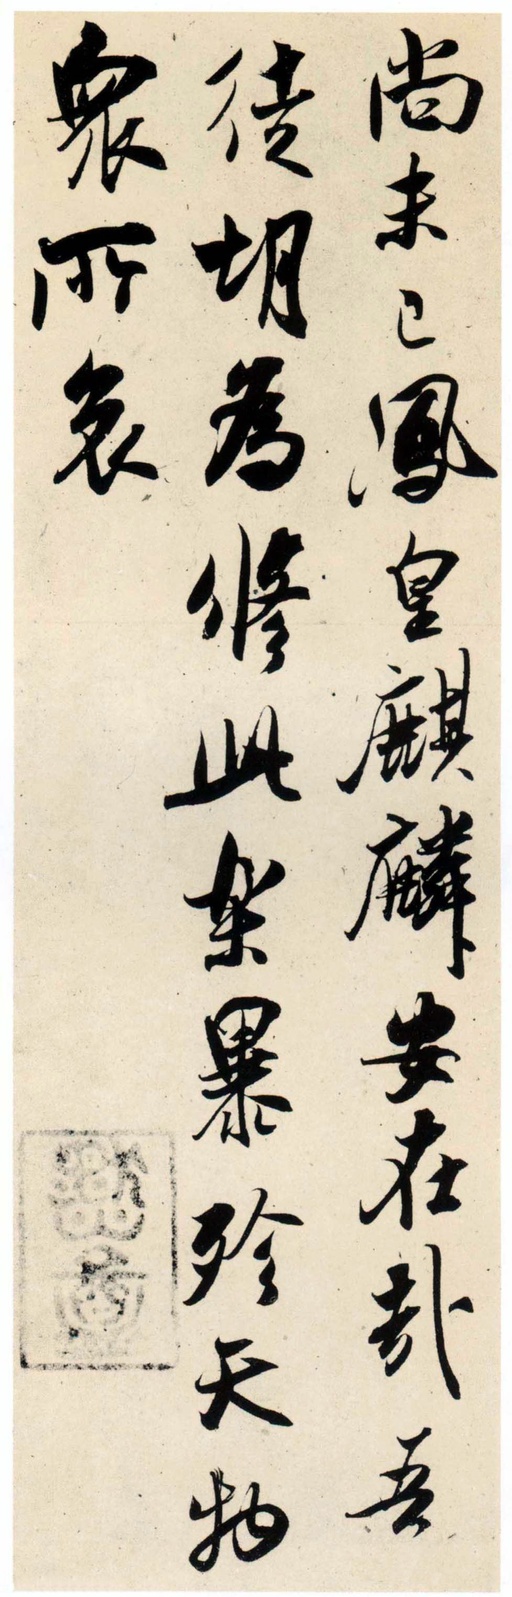 尚未已鳳皇麒麟安在哉吾
徒胡為修此樂暴殄天物
眾所哀